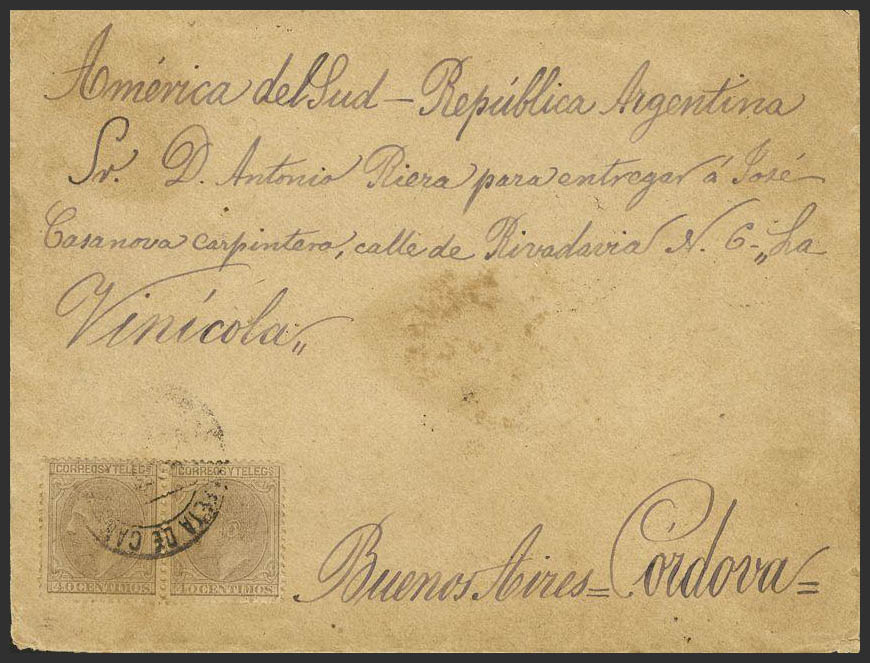 América del Sud – República Argentina
Sr. D. Antonio Riera para entregar á José
Casanova carpintero, calle de Rivadavia N. 6 - „La
Vinícola„
CORREOS Y TELEGS CORREOS Y TELEGS
FETA DE CA
40 CENTIMOS 40 CENTIMOS
Buenos Aires = Córdova =